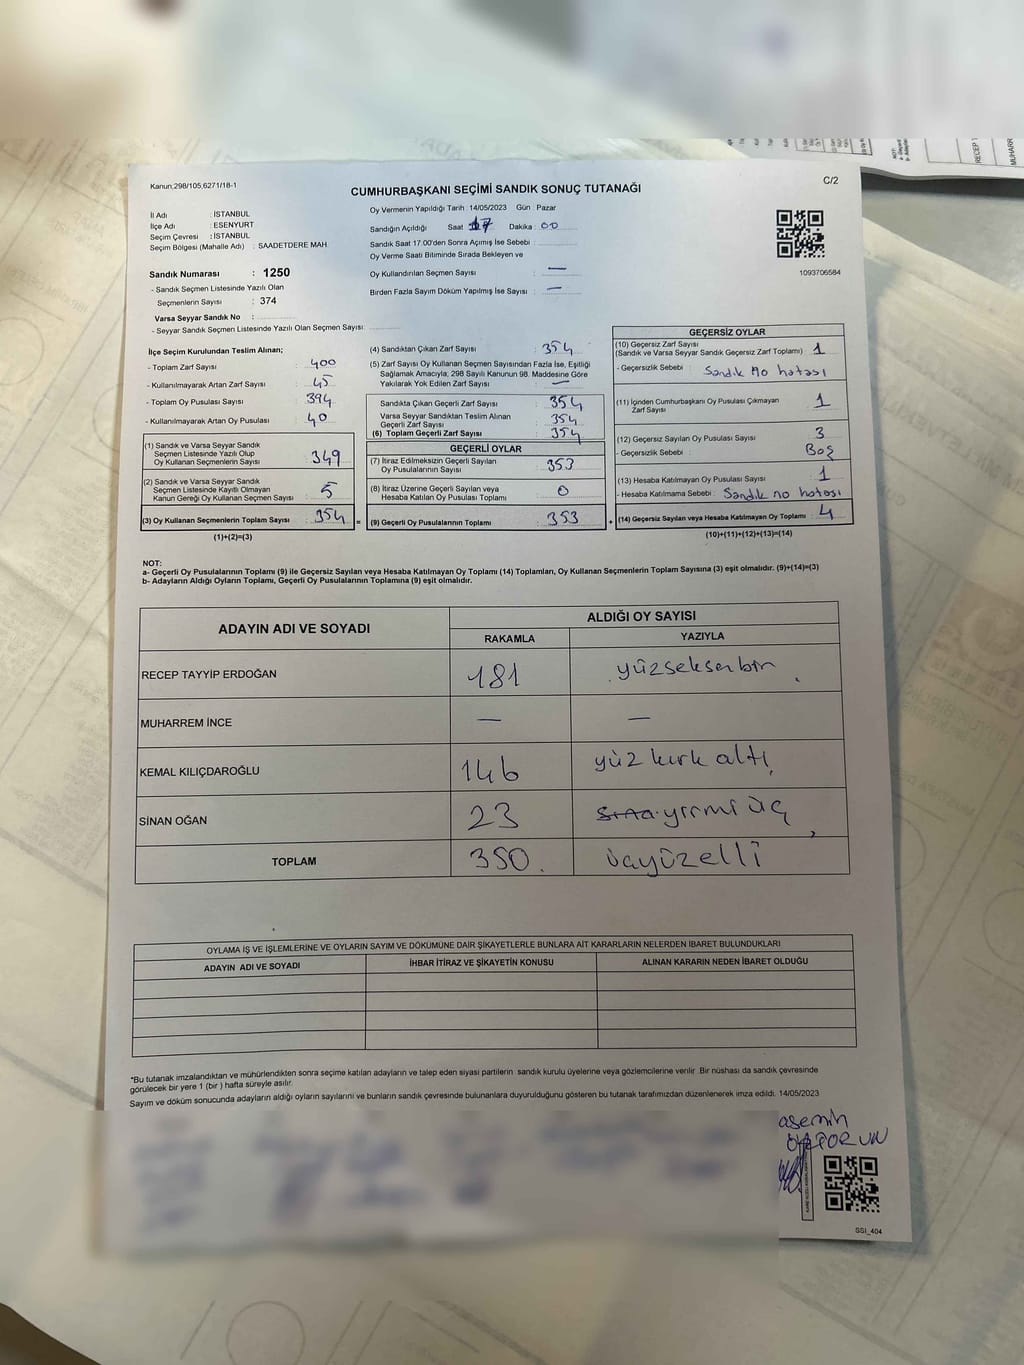 Kanun,298/105,6271/18-1
CUMHURBAŞKANI SEÇİMİ SANDIK SONUÇ TUTANAĞI
C/2
İl Adı : İSTANBUL
İlçe Adı : ESENYURT
Seçim Çevresi : İSTANBUL
Seçim Bölgesi (Mahalle Adı) : SAADETDERE MAH.
Oy Vermenin Yapıldığı Tarih :14/05/2023 Gün : Pazar
Sandığın Açıldığı Saat : 17 Dakika : 00
Sandık Saat 17.00'den Sonra Açımış İse Sebebi :
Oy Verme Saati Bitiminde Sırada Bekleyen ve
Oy Kullandırılan Seçmen Sayısı : —
Birden Fazla Sayım Döküm Yapılmış İse Sayısı : —
1093706584
Sandık Numarası : 1250
- Sandık Seçmen Listesinde Yazılı Olan
Seçmenlerin Sayısı : 374
Varsa Seyyar Sandık No :
- Seyyar Sandık Seçmen Listesinde Yazılı Olan Seçmen Sayısı:
İlçe Seçim Kurulundan Teslim Alınan;
- Toplam Zarf Sayısı : 400
- Kullanılmayarak Artan Zarf Sayısı : 45
- Toplam Oy Pusulası Sayısı : 394
- Kullanılmayarak Artan Oy Pusulası : 40
(1) Sandık ve Varsa Seyyar Sandık
Seçmen Listesinde Yazılı Olup
Oy Kullanan Seçmenlerin Sayısı : 349
(2) Sandık ve Varsa Seyyar Sandık
Seçmen Listesinde Kayıtlı Olmayan
Kanun Gereği Oy Kullanan Seçmen Sayısı : 5
(3) Oy Kullanan Seçmenlerin Toplam Sayısı : 354 =
(1)+(2)=(3)
(4) Sandıktan Çıkan Zarf Sayısı : 354
(5) Zarf Sayısı Oy Kullanan Seçmen Sayısından Fazla İse, Eşitliği
Sağlamak Amacıyla, 298 Sayılı Kanunun 98. Maddesine Göre
Yakılarak Yok Edilen Zarf Sayısı : —
Sandıkta Çıkan Geçerli Zarf Sayısı : 354
Varsa Seyyar Sandıktan Teslim Alınan
Geçerli Zarf Sayısı : 354
(6) Toplam Geçerli Zarf Sayısı : 354
GEÇERLİ OYLAR
(7) İtiraz Edilmeksizin Geçerli Sayılan
Oy Pusulalarının Sayısı : 353
(8) İtiraz Üzerine Geçerli Sayılan veya
Hesaba Katılan Oy Pusulası Toplamı : 0
(9) Geçerli Oy Pusulalarının Toplamı : 353 +
GEÇERSİZ OYLAR
(10) Geçersiz Zarf Sayısı
(Sandık ve Varsa Seyyar Sandık Geçersiz Zarf Toplamı) : 1
- Geçersizlik Sebebi : Sandık no hatası
(11) İçinden Cumhurbaşkanı Oy Pusulası Çıkmayan
Zarf Sayısı : 1
(12) Geçersiz Sayılan Oy Pusulası Sayısı : 3
- Geçersizlik Sebebi : Boş
(13) Hesaba Katılmayan Oy Pusulası Sayısı : 1
- Hesaba Katılmama Sebebi : Sandık no hatası
(14) Geçersiz Sayılan veya Hesaba Katılmayan Oy Toplamı : 4
(10)+(11)+(12)+(13)=(14)
NOT:
a- Geçerli Oy Pusulalarının Toplamı (9) ile Geçersiz Sayılan veya Hesaba Katılmayan Oy Toplamı (14) Toplamları, Oy Kullanan Seçmenlerin Toplam Sayısına (3) eşit olmalıdır. (9)+(14)=(3)
b- Adayların Aldığı Oyların Toplamı, Geçerli Oy Pusulalarının Toplamına (9) eşit olmalıdır.
ADAYIN ADI VE SOYADI
ALDIĞI OY SAYISI
RAKAMLA YAZIYLA
RECEP TAYYİP ERDOĞAN 181 yüzseksenbir
MUHARREM İNCE — —
KEMAL KILIÇDAROĞLU 146 yüz kırk altı
SİNAN OĞAN 23 yirmi üç
TOPLAM 350 üçyüzelli
OYLAMA İŞ VE İŞLEMLERİNE VE OYLARIN SAYIM VE DÖKÜMÜNE DAİR ŞİKAYETLERLE BUNLARA AİT KARARLARIN NELERDEN İBARET BULUNDUKLARI
ADAYIN ADI VE SOYADI İHBAR İTİRAZ VE ŞİKAYETİN KONUSU ALINAN KARARIN NEDEN İBARET OLDUĞU
*Bu tutanak imzalandıktan ve mühürlendikten sonra seçime katılan adayların ve talep eden siyasi partilerin sandık kurulu üyelerine veya gözlemcilerine verilir. Bir nüshası da sandık çevresinde
görülecek bir yere 1 (bir ) hafta süreyle asılır.
Sayım ve döküm sonucunda adayların aldığı oyların sayılarını ve bunların sandık çevresinde bulunanlara duyurulduğunu gösteren bu tutanak tarafımızdan düzenlenerek imza edildi. 14/05/2023
SSI_404